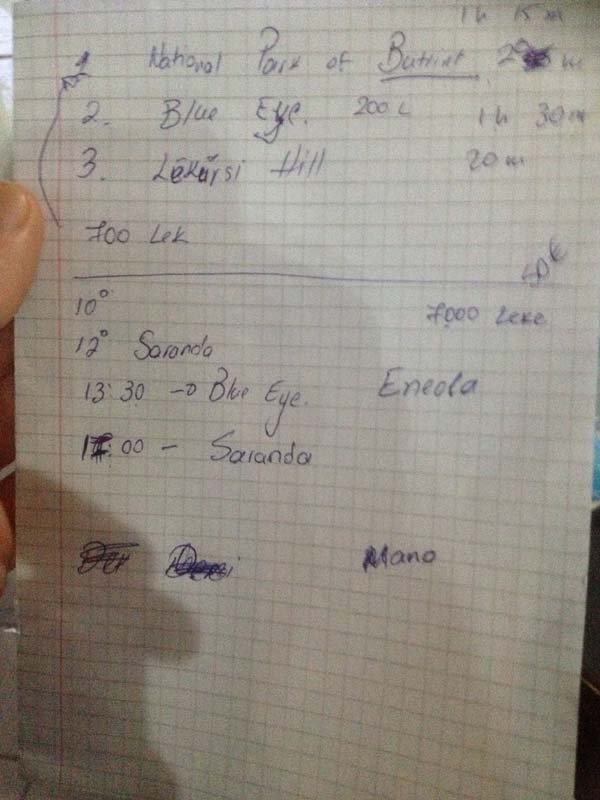 1h 15m
1 National Park of Butrint 2 m
2. Blue Eye. 200 L 1h 30m
3. Lëkürsi Hill 20m
700 Lek
10°
7000 Leke
12° Saranda
13:30 → Blue Eye. Eneola
17:00 - Saranda
Mano